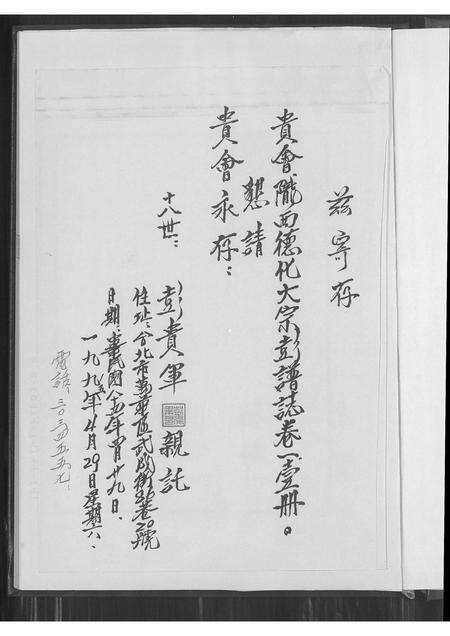 茲寄存
貴會隴西德化大宗彭譜誌卷一壹冊。
懇請
貴會永存：
十八世：
彭貴軍 親託
住址：台北市萬華區武成街 巷20號
日期：華民國八四年 月廿九日、
一九九五年4月29日星期六、
電話：三〇 四五五九